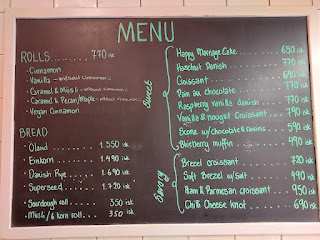 MENU
ROLLS ........ 770 isk
- Cinnamon
- Vanilla - without cinnamon
- Caramel & Müsli - without cinnamon
- Caramel & Pecan/Maple - without cinnamon
- Vegan Cinnamon
BREAD
- Öland ........ 1.350 isk
- Einkorn ........ 1.490 isk
- Danish Rye ..... 1.690 isk
- Superseed ...... 1.720 isk
- Sourdough roll ..... 350 isk
- Müsli / & korn roll ... 350 isk
Sweet
Happy Marriage Cake ....... 650 isk
Hazelnut Danish ....... 770 isk
Croissant ....... 640 isk
Pain au chocolate ....... 770 isk
Raspberry vanilla danish ..... 770 isk
Vanilla & nougat Croissant .... 790 isk
Scone w/ chocolate & raisins ... 590 isk
Blueberry muffin ....... 490 isk
Savory
Brezel croissant ....... 720 isk
Soft Brezel w/ salt ....... 490 isk
Ham & Parmesan croissant .... 950 isk
Chilli Cheese knot ....... 690 isk